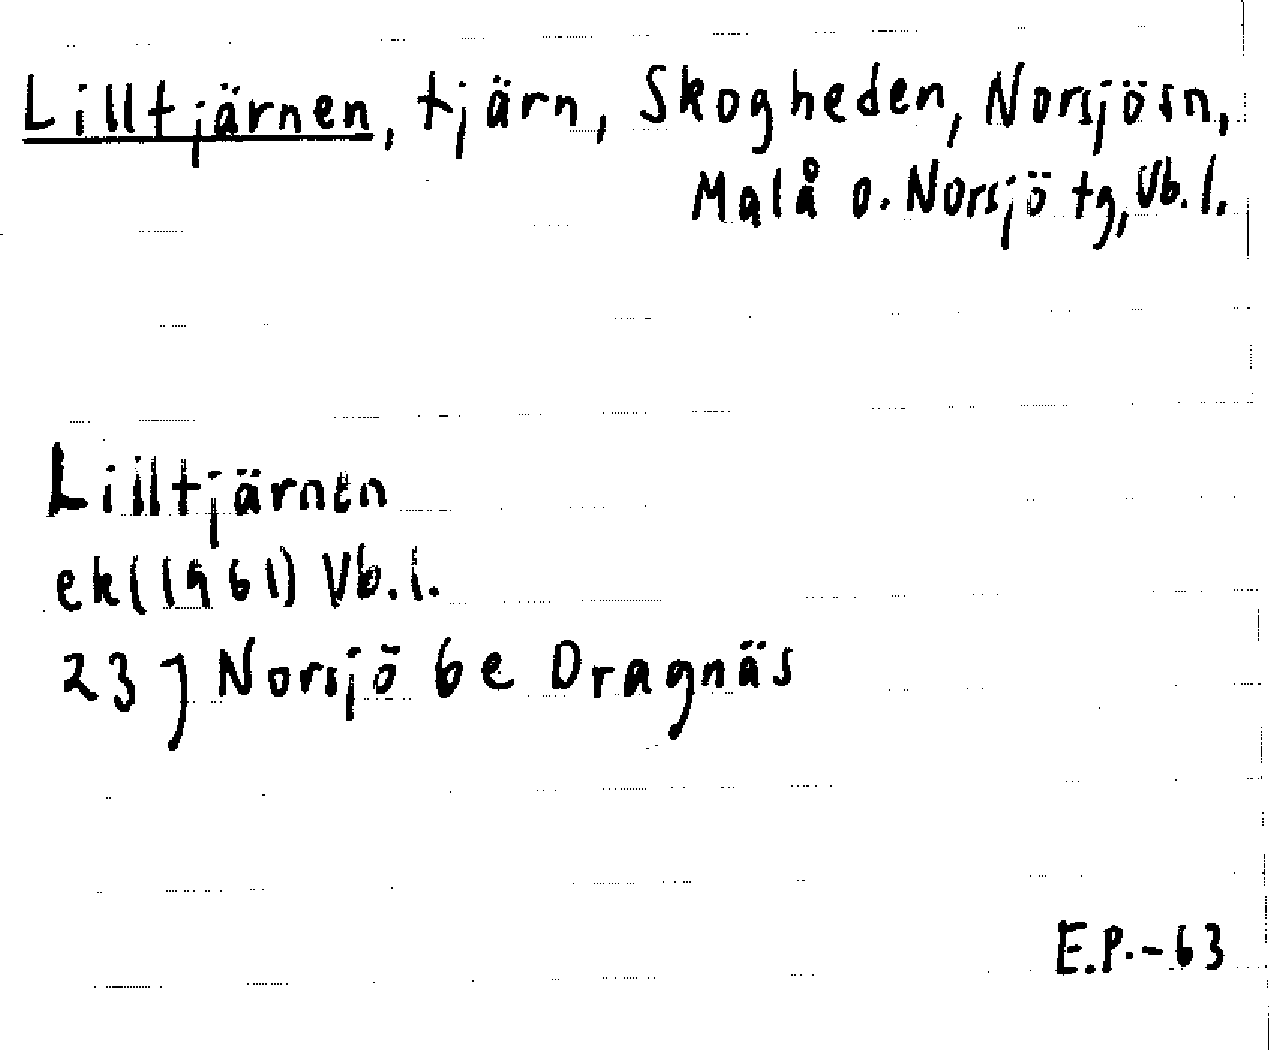 Lilltjärnen, tjärn, Skogheden, Norsjösn,
Malå o. Norsjö tg, Vb. l.
Lilltjärnen
ek (1961) Vb. l.
23 J Norsjö 6e Dragnäs
E.P.-63